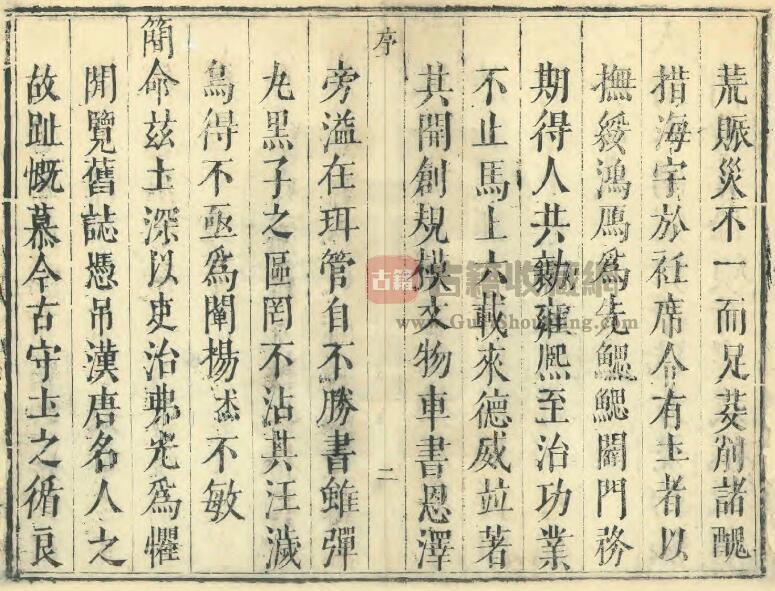 荒賑災不一而足芟削諸醜
措海宇於衽席令有土者以
撫綏鴻鴈爲先鰓鰓闢門務
期得人共勷雍熙至治功業
不止馬上六載來德威並著
其開創規模文物車書恩澤
序
二
旁溢在珥管自不勝書雖彈
丸黑子之區罔不沾其汪濊
烏得不亟爲闡揚不敏
簡命茲土深以吏治弗光爲懼
閒覽舊誌憑吊漢唐名人之
故趾慨慕今古守土之循良
古籍
古籍收藏網
www.GuJiShouCang.com